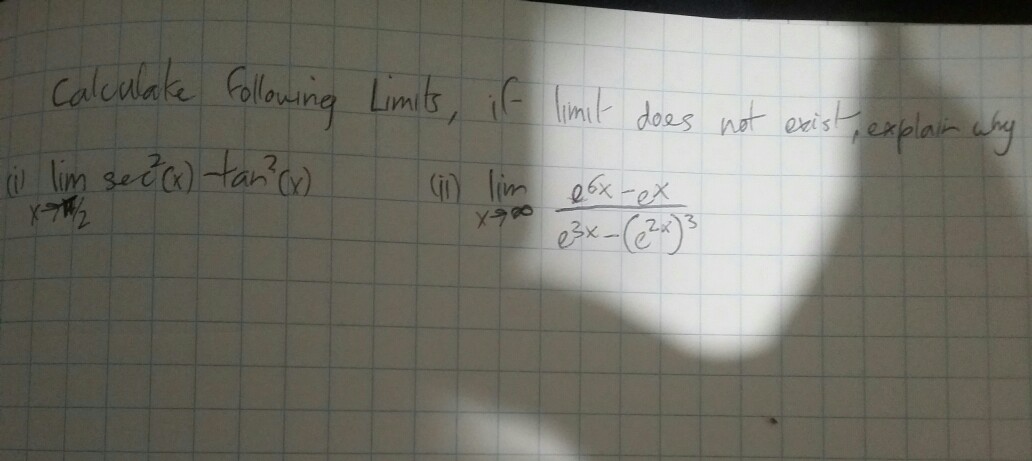 Calculate Following Limits, if limit does not exist, explain why
(i) lim x→π/2 sec²(x) - tan²(x) (ii) lim x→∞ (e^6x - e^x) / (e^3x - (e^2x)^3)